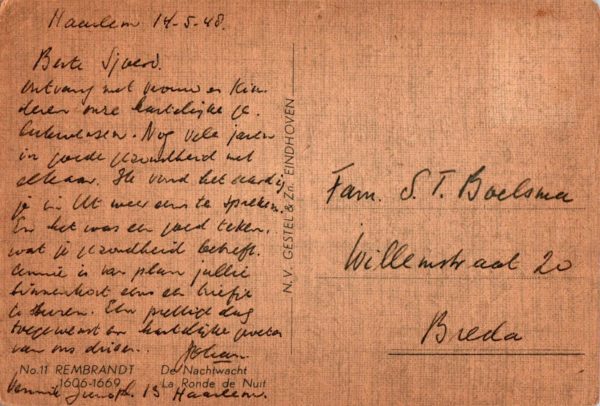 Haarlem 14-5-48.
Beste Sjoerd.
Ontvang met vrouw en kin
deren onze hartelijke ge
lukwensen. Nog vele jaren
in goede gezondheid met
elkaar. Ik vond het aardig
je in Ut weer eens te spreken.
En het was een goed teken,
wat je gezondheid betreft.
Annie is van plan jullie
binnenkort eens een briefje
te sturen. Een prettige dag
toegewenst en hartelijke groeten
van ons drieën.
No. 11 REMBRANDT De Nachtwacht
1606-1669 La Ronde de Nuit
13 Haarlem.
N.V. GESTEL & Zn. EINDHOVEN
Fam. S. T. Boelsma
Willemstraat 20
Breda